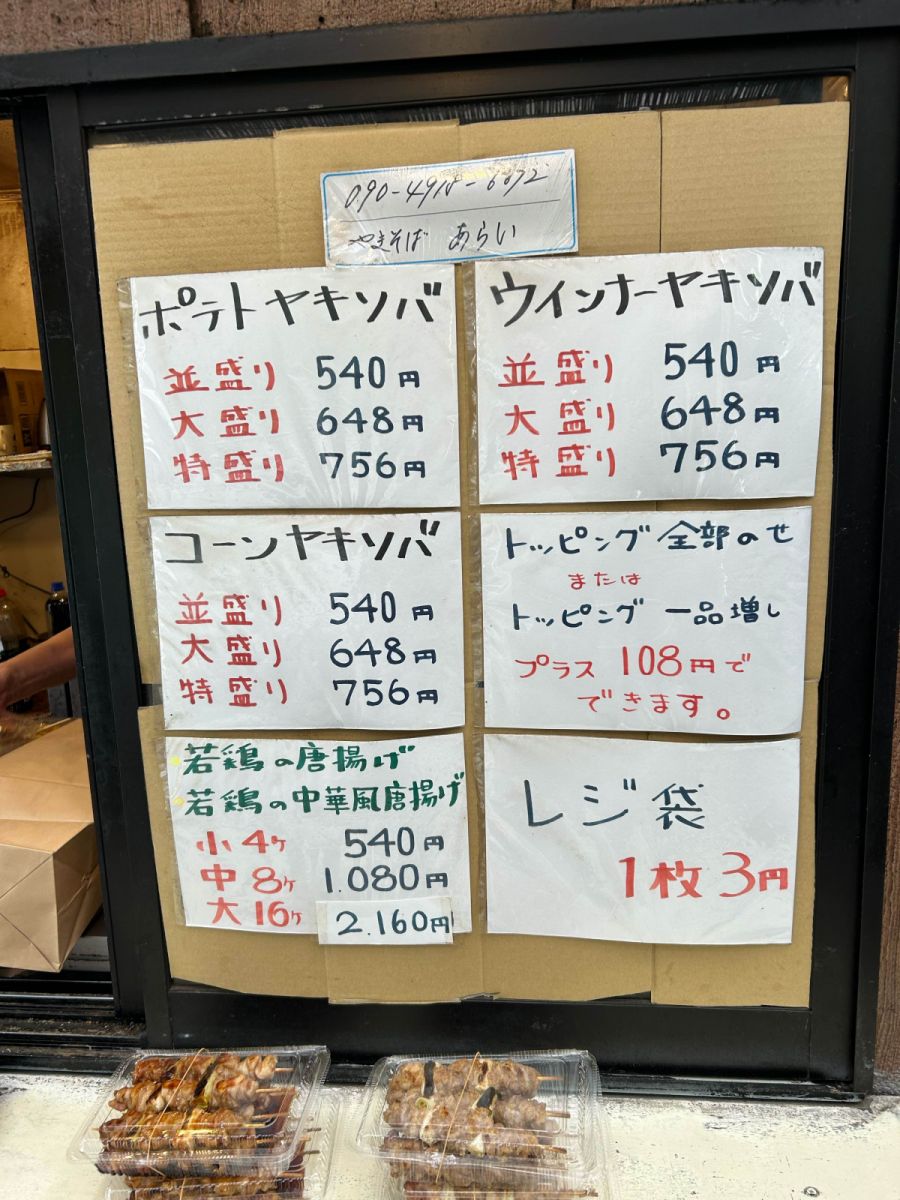 やきそば あらい
ポテトヤキソバ
並盛り 540円
大盛り 648円
特盛り 756円
ウインナーヤキソバ
並盛り 540円
大盛り 648円
特盛り 756円
コーンヤキソバ
並盛り 540円
大盛り 648円
特盛り 756円
トッピング全部のせ
または
トッピング 一品増し
プラス 108円で
できます。
若鶏の唐揚げ
若鶏の中華風唐揚げ
小4ヶ 540円
中8ヶ 1.080円
大16ヶ 2.160円
レジ袋
1枚3円